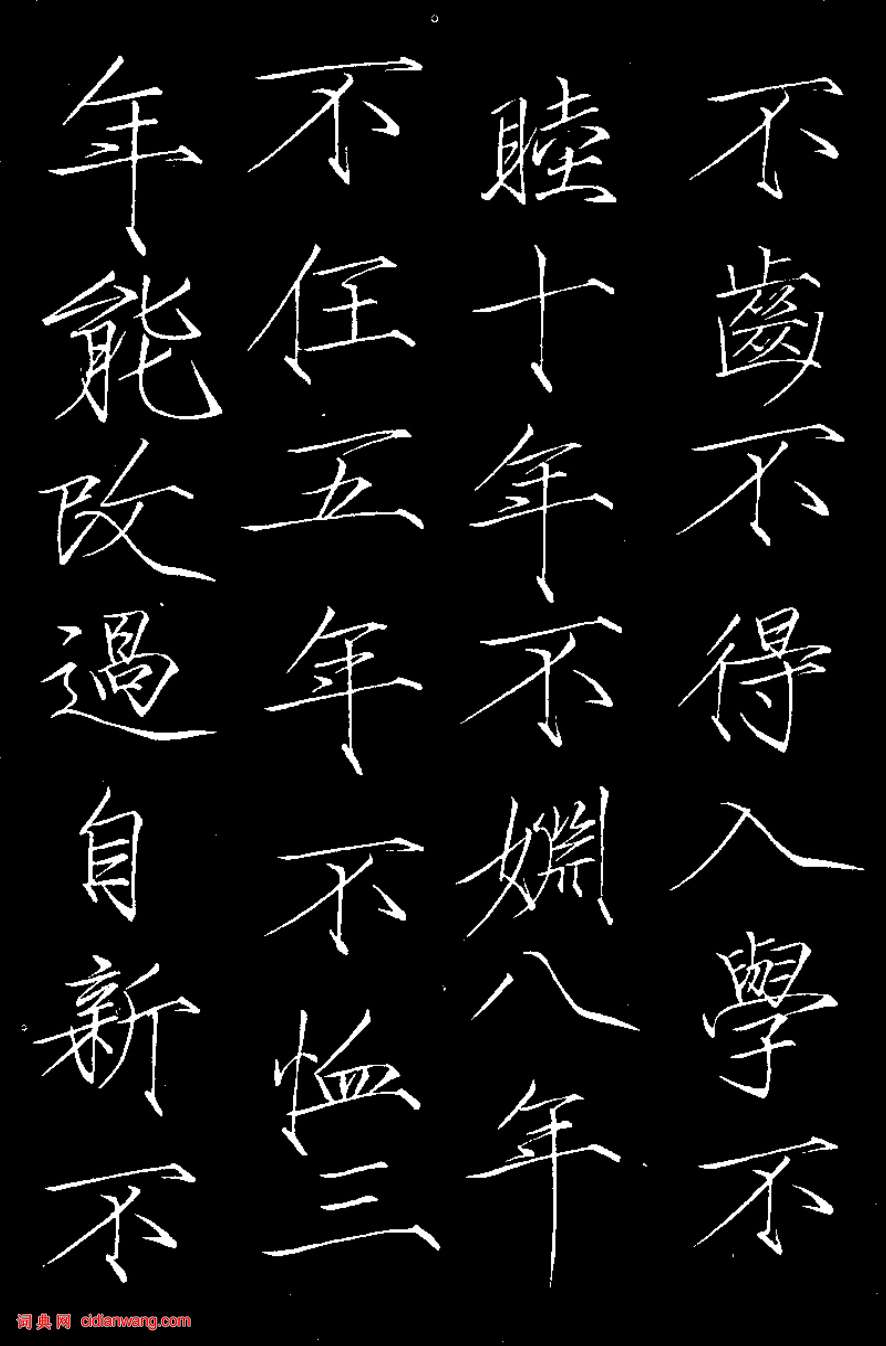 不齒不得入學不
睦十年不嫻八年
不任五年不恤三
年能改過自新不
词典网 cidianwang.com